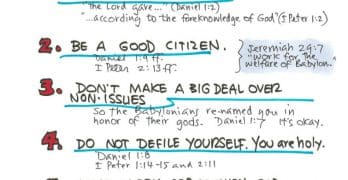 "The Lord gave..." (Daniel 1:2)
"...according to the foreknowledge of God" (I Peter 1:2)
2. BE A GOOD CITIZEN.
Daniel 1:9ff.
I Peter 2:13ff.
Jeremiah 29:7
"Work for the
welfare of Babylon."
3. DON'T MAKE A BIG DEAL OVER
NON-ISSUES
So the Babylonians re-named you in
honor of their gods. Daniel 1:7 It's okay.
4. DO NOT DEFILE YOURSELF. You are holy.
Daniel 1:8
I Peter 1:14-15 and 2:11